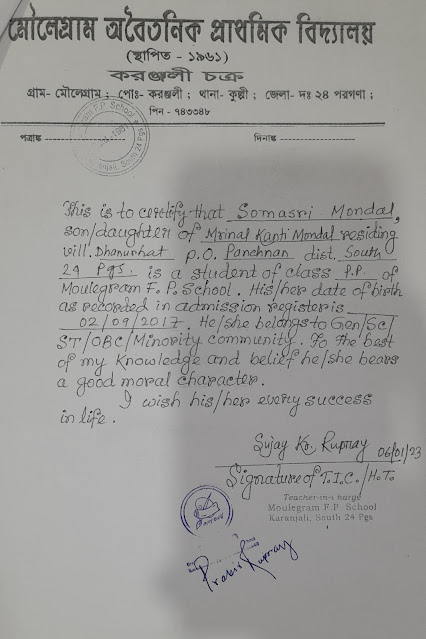 মৌলেগ্রাম অবৈতনিক প্রাথমিক বিদ্যালয়
(স্থাপিত - ১৯৬১)
করঞ্জলী চক্র
গ্রাম- মৌলেগ্রাম ; পোঃ- করঞ্জলী ; থানা- কুল্পী ; জেলা- দঃ ২৪ পরগণা ;
পিন - ৭৪৩৩৪৮
পত্রাঙ্ক
দিনাঙ্ক
F.P. School
South 24 Pgs
This is to certify that Somasri Mondal,
son/daughter of Mrinal Kanti Mondal residing
vill. Dhanurhat p.o. Panchnan dist. South
24 Pgs. is a student of class P.P. of
Moulegram F.P. School. His/her date of birth
as recorded in admission register is
02/09/2017. He/she belongs to Gen/Sc/
ST/OBC/Minority community. To the best
of my knowledge and belief he/she bears
a good moral character.
I wish his/her every success
in life.
Sujay Kr. Rupray 06/01/23
Signature of T.I.C./H.T.
Teacher-in-charge
Moulegram F.P. School
Karanjali, South 24 Pgs